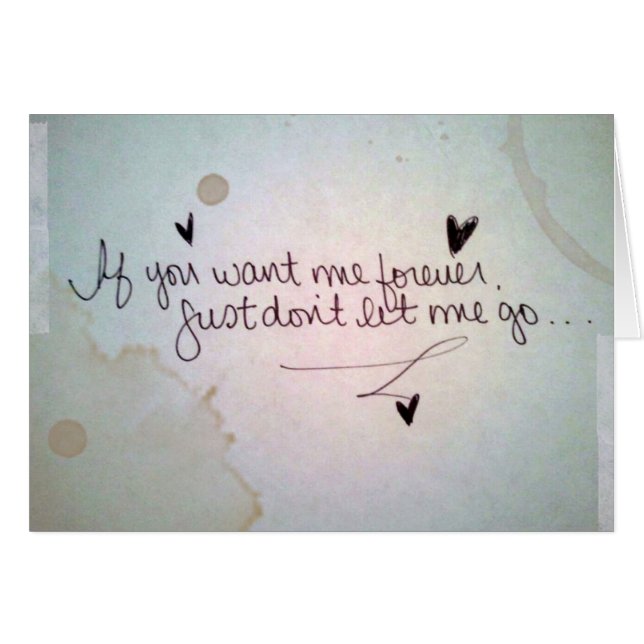 If you want me forever,
Just don't let me go....